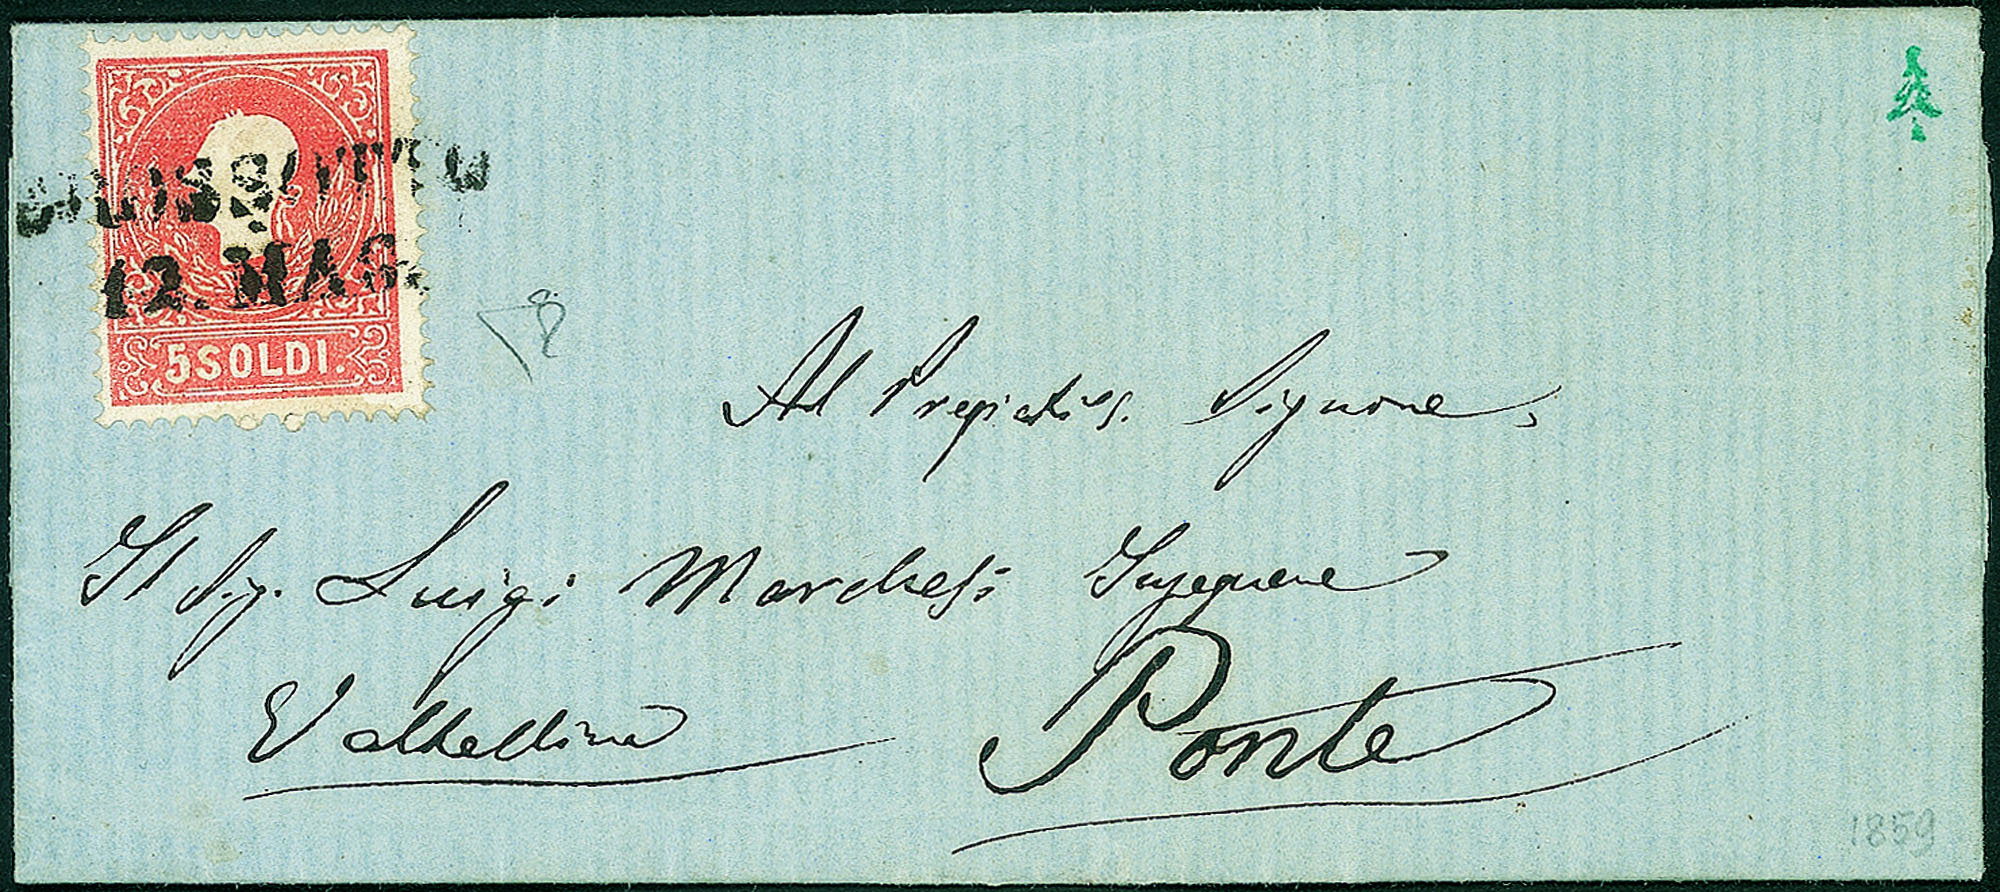 12. MAG.
5 SOLDI.
Al Pregiatiss. Signore,
Il Sig. Luigi Marchesi Ingegnere
Valtellina Ponte
1859